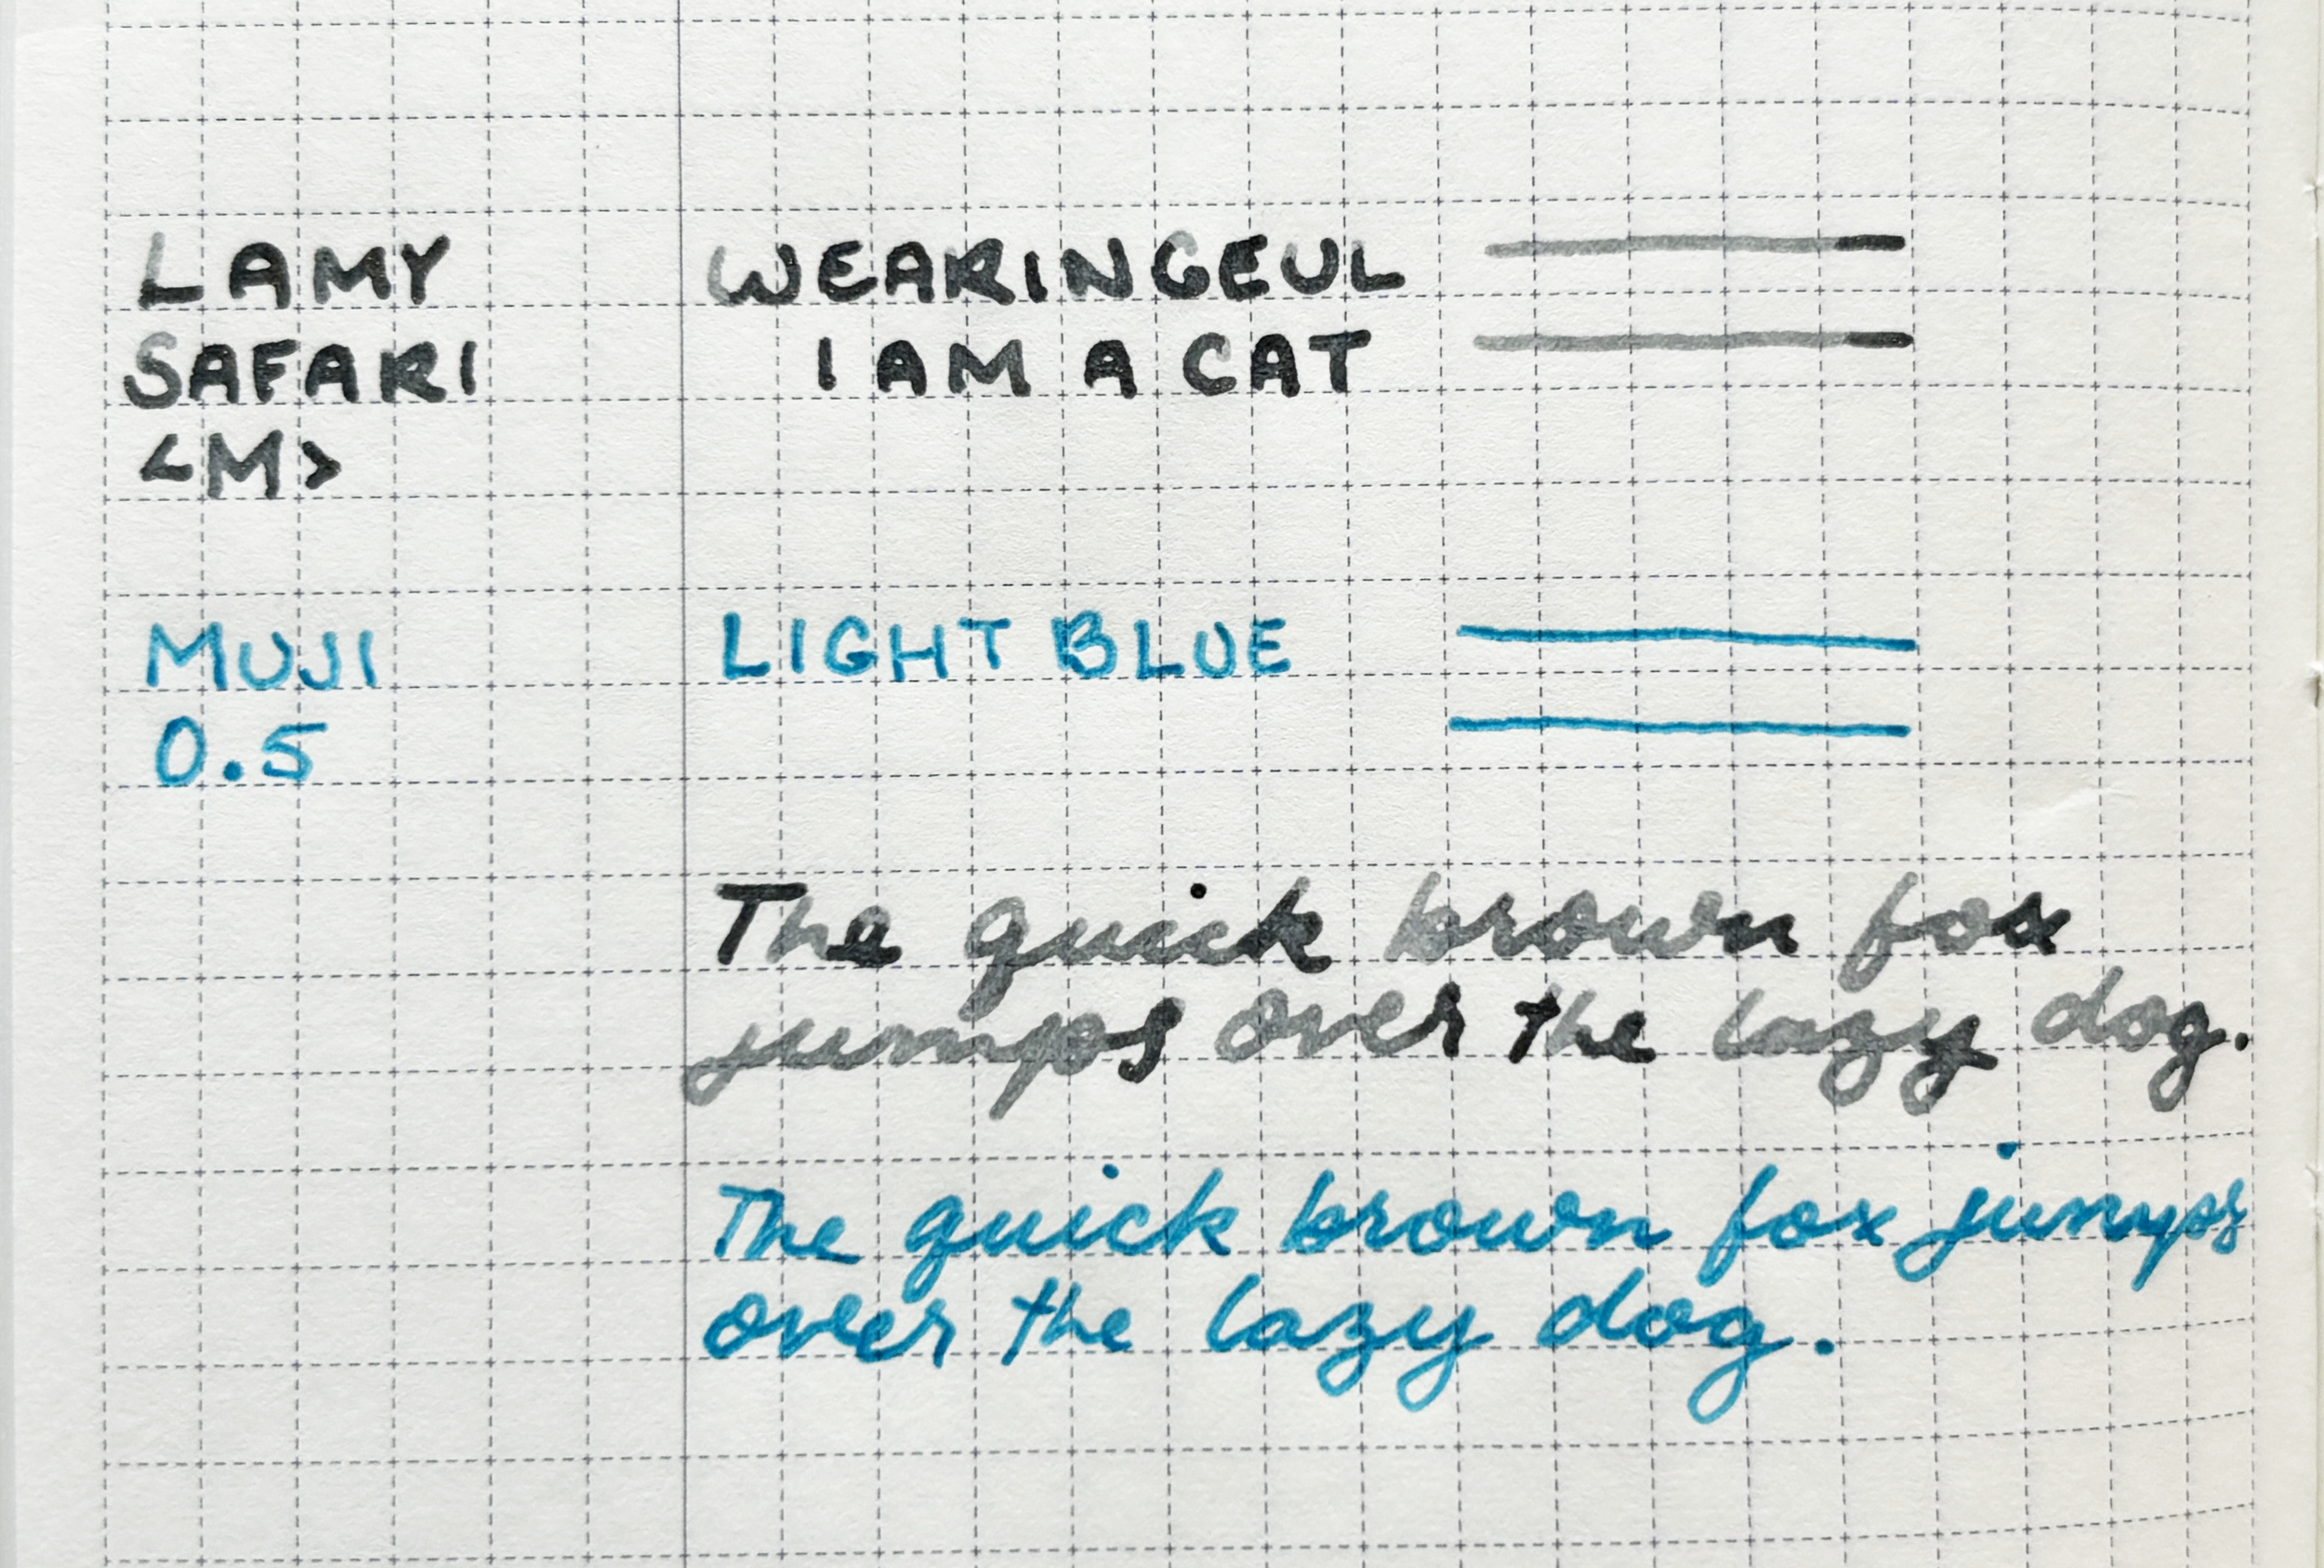 LAMY
SAFARI
<M>
WEARINGEUL
I AM A CAT
MUJI
0.5
LIGHT BLUE
The quick brown fox
jumps over the lazy dog.
The quick brown fox jumps
over the lazy dog.